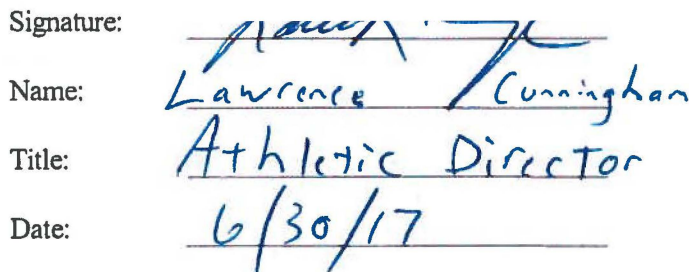 Signature:
Name: Lawrence Cunningham
Title: Athletic Director
Date: 6/30/17